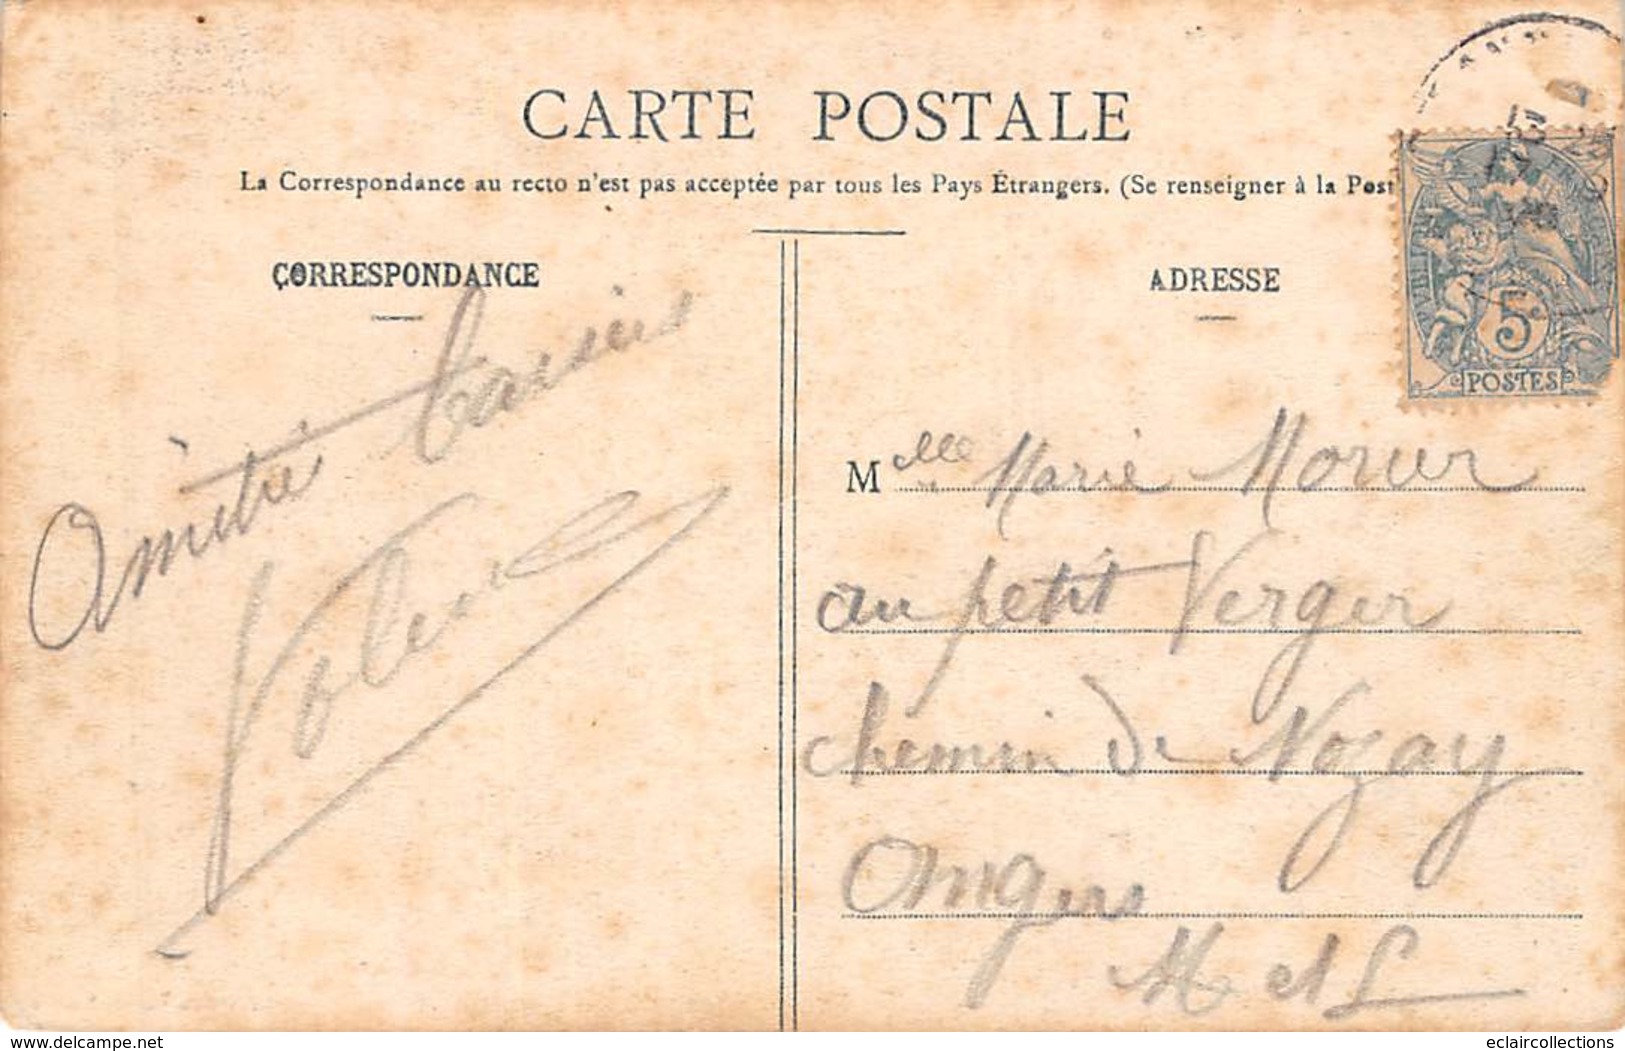 CARTE POSTALE
La Correspondance au recto n'est pas acceptée par tous les Pays Étrangers. (Se renseigner à la Post
CORRESPONDANCE
Amitié baisers
ADRESSE
5c
POSTES
Melle Marie
au petit Verger
chemin de Nozay
Angers
M et L
delcampe.net
eclaircollections